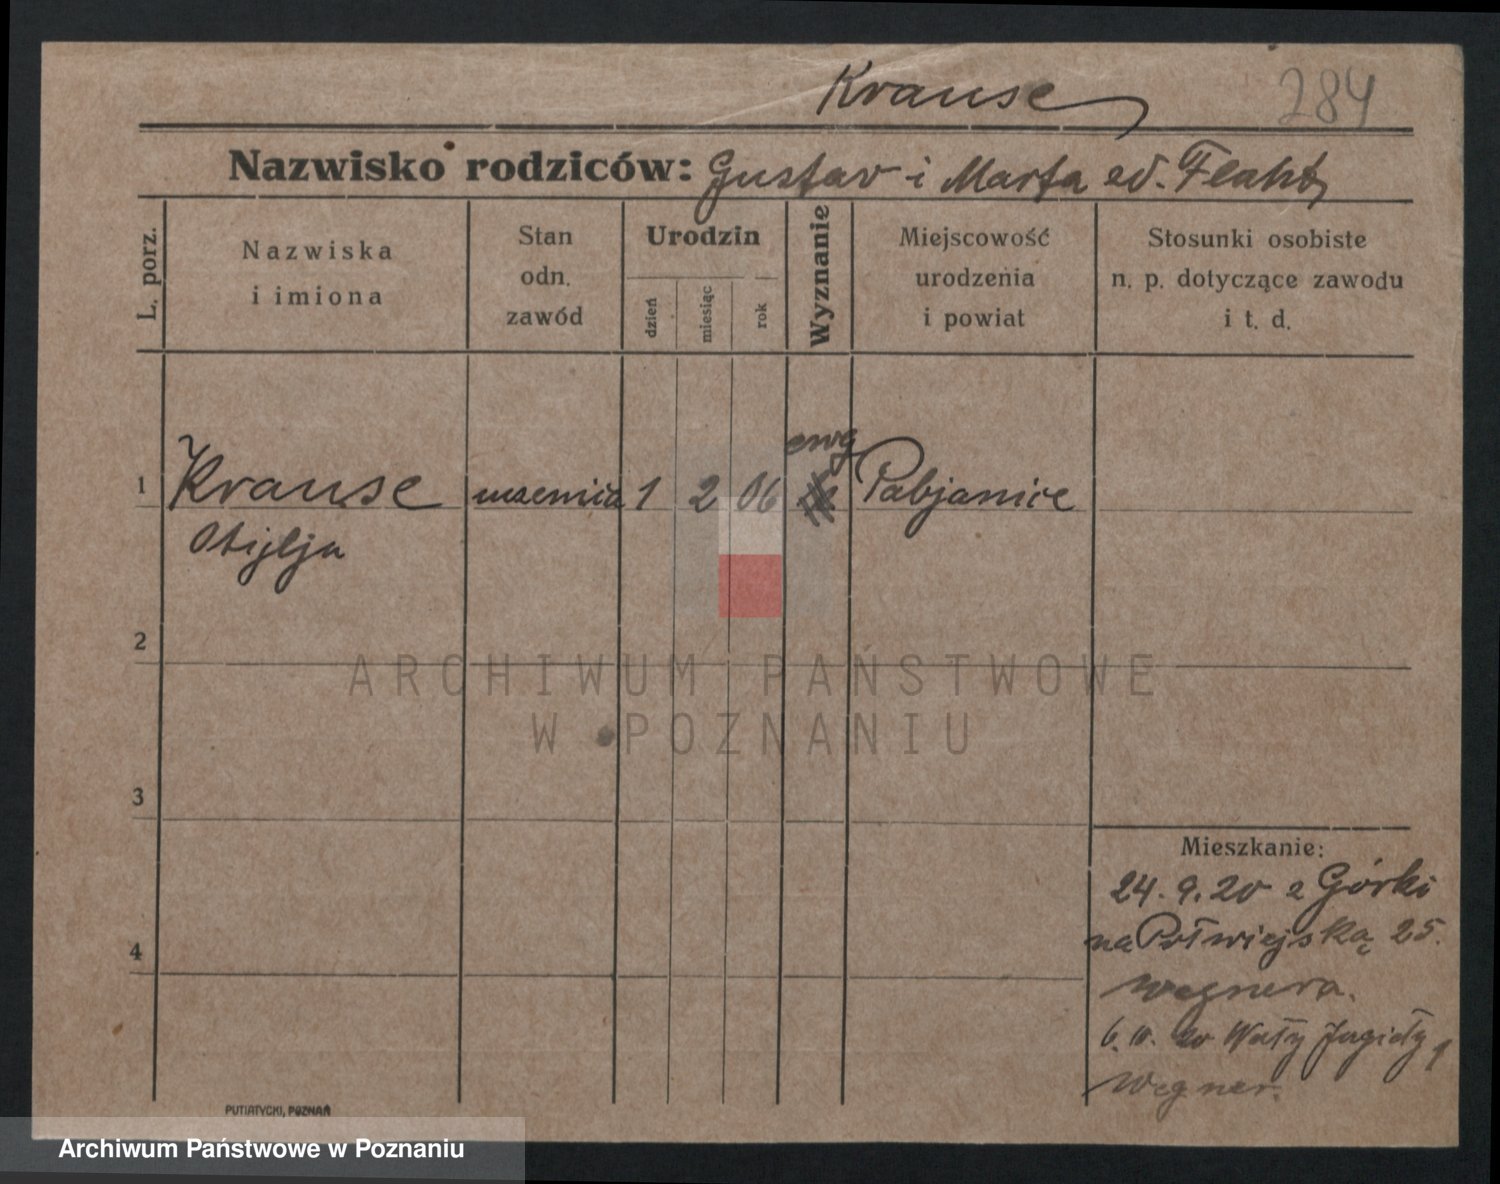 Krause
284
Nazwisko rodziców: Gustav i Marta ed.
L. porz.
Nazwiska
i imiona
Stan
odn.
zawód
Urodzin
dzień
miesiąc
rok
Wyznanie
Miejscowość
urodzenia
i powiat
Stosunki osobiste
n. p. dotyczące zawodu
i t. d.
1 Krause uczenica 1 2 06 ewg Pabjanice
Otijlja
2
ARCHIWUM PAŃSTWOWE
W POZNANIU
3
Mieszkanie:
24. 9. 20 z Górki
4
na Półwiejską 25.
Wegnera.
6. 10. 20 Wały Jagiełły 1
Wegner.
PUTIATYCKI, POZNAŃ
Archiwum Państwowe w Poznaniu